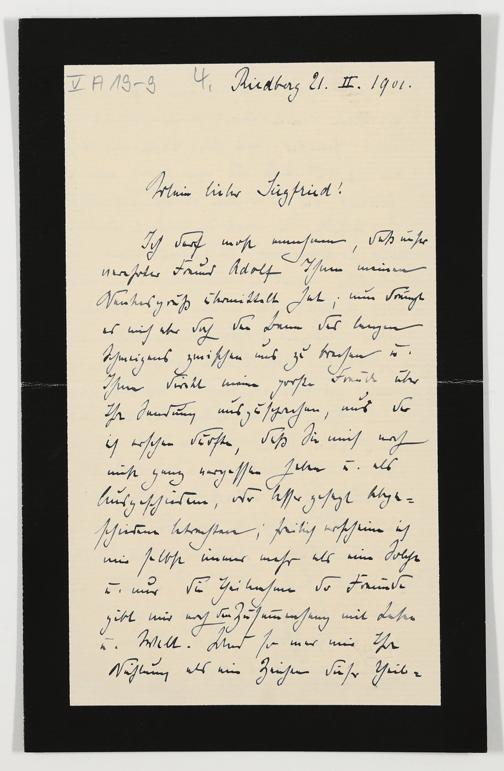 V A 19-9 4. Riedberg 21. II. 1901.
Mein lieber Siegfried!
Ich darf wohl annehmen, daß unser
verehrter Freund Adolf Ihnen meinen
übermittelt hat; nun drängt
es mich aber doch den Bann des langen
Schweigens zwischen uns zu brechen u.
Ihnen direkt meine große Freude über
Ihre Sendung auszusprechen, aus der
ich ersehen durfte, daß Sie mich noch
nicht ganz vergessen haben u. als
Ausgeschiedenen, oder besser gesagt Abge=
schiedenen betrachten; freilich erscheine ich
mir selbst immer mehr als ein Solcher
u. nur die Theilnahme der Freunde
gibt mir noch den Zusammenhang mit Leben
u. Welt. Und so war mir Ihre
als ein Zeichen dieser Theil=